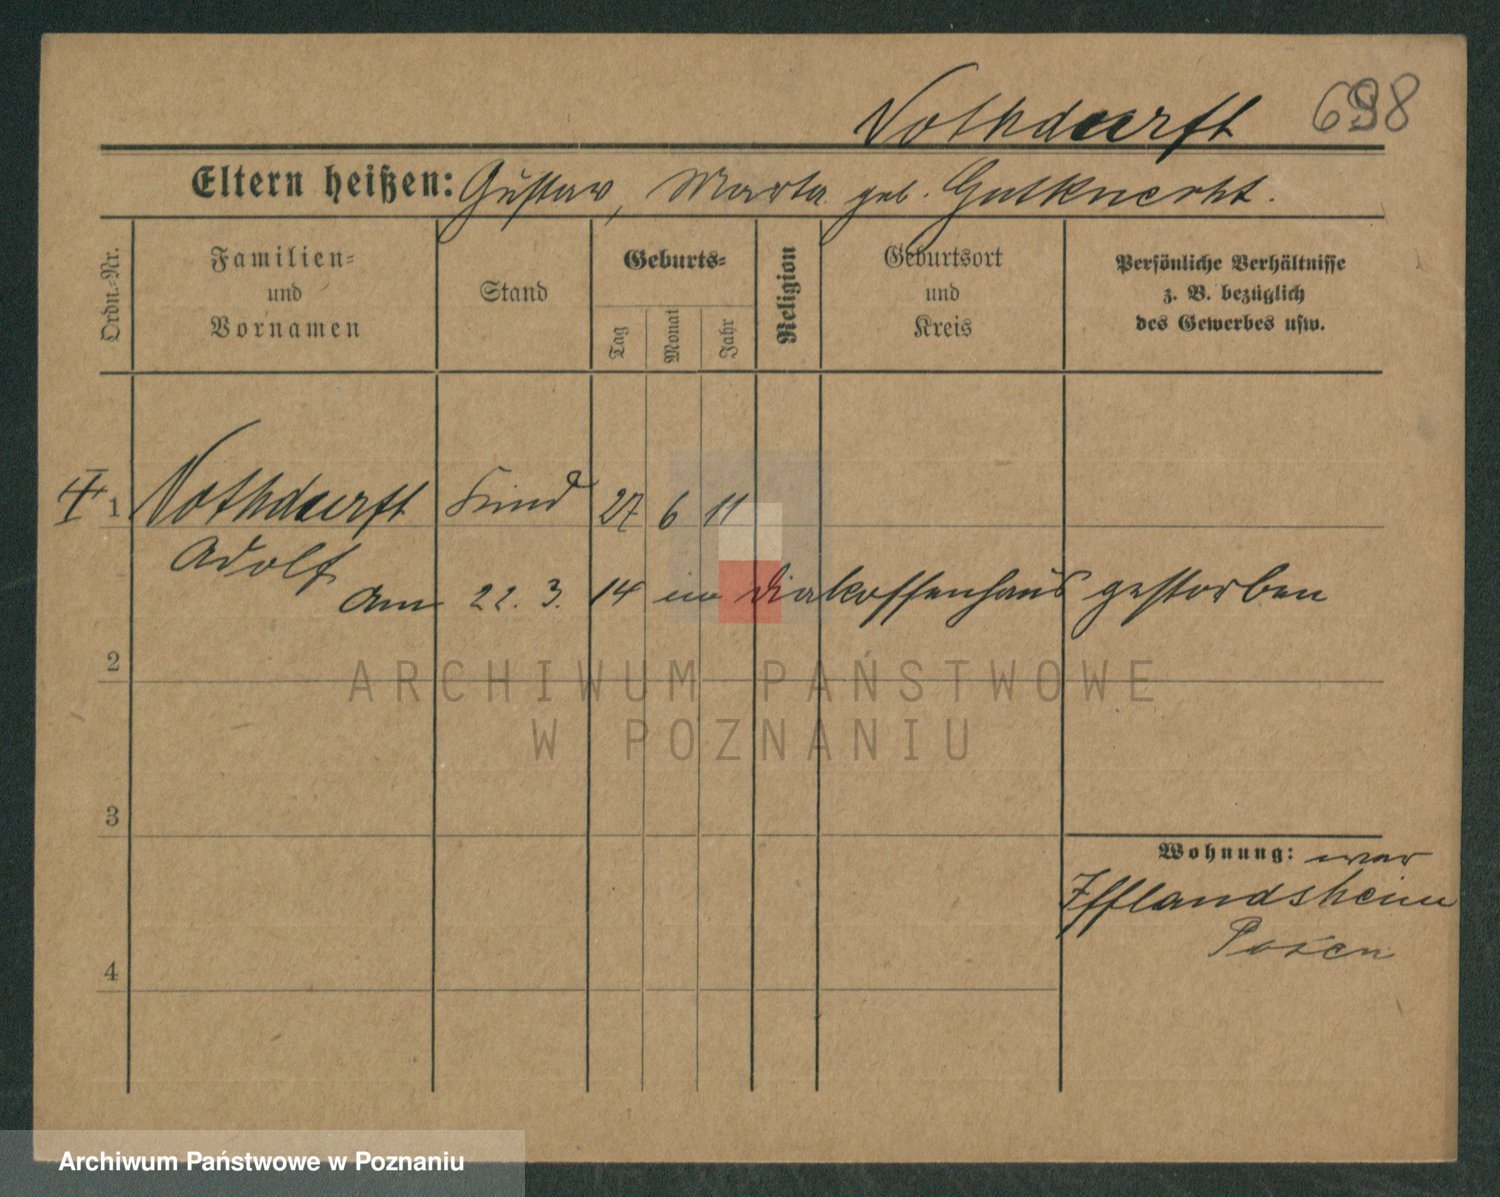 Nothdurft 698
Eltern heißen: Gustav, Marta geb. Gutknecht.
Ordn.-Nr.
Familien-
und
Vornamen
Stand
Geburts-
Tag
Monat
Jahr
Religion
Geburtsort
und
Kreis
Persönliche Verhältnisse
z. B. bezüglich
des Gewerbes usw.
1 Nothdurft Kind 27 6 11
Adolf
Am 22. 3. 14 im Diakossenhaus gestorben
2
ARCHIWUM PAŃSTWOWE
W POZNANIU
3
Wohnung: war
Ifflandsheim
Posen
4
Archiwum Państwowe w Poznaniu